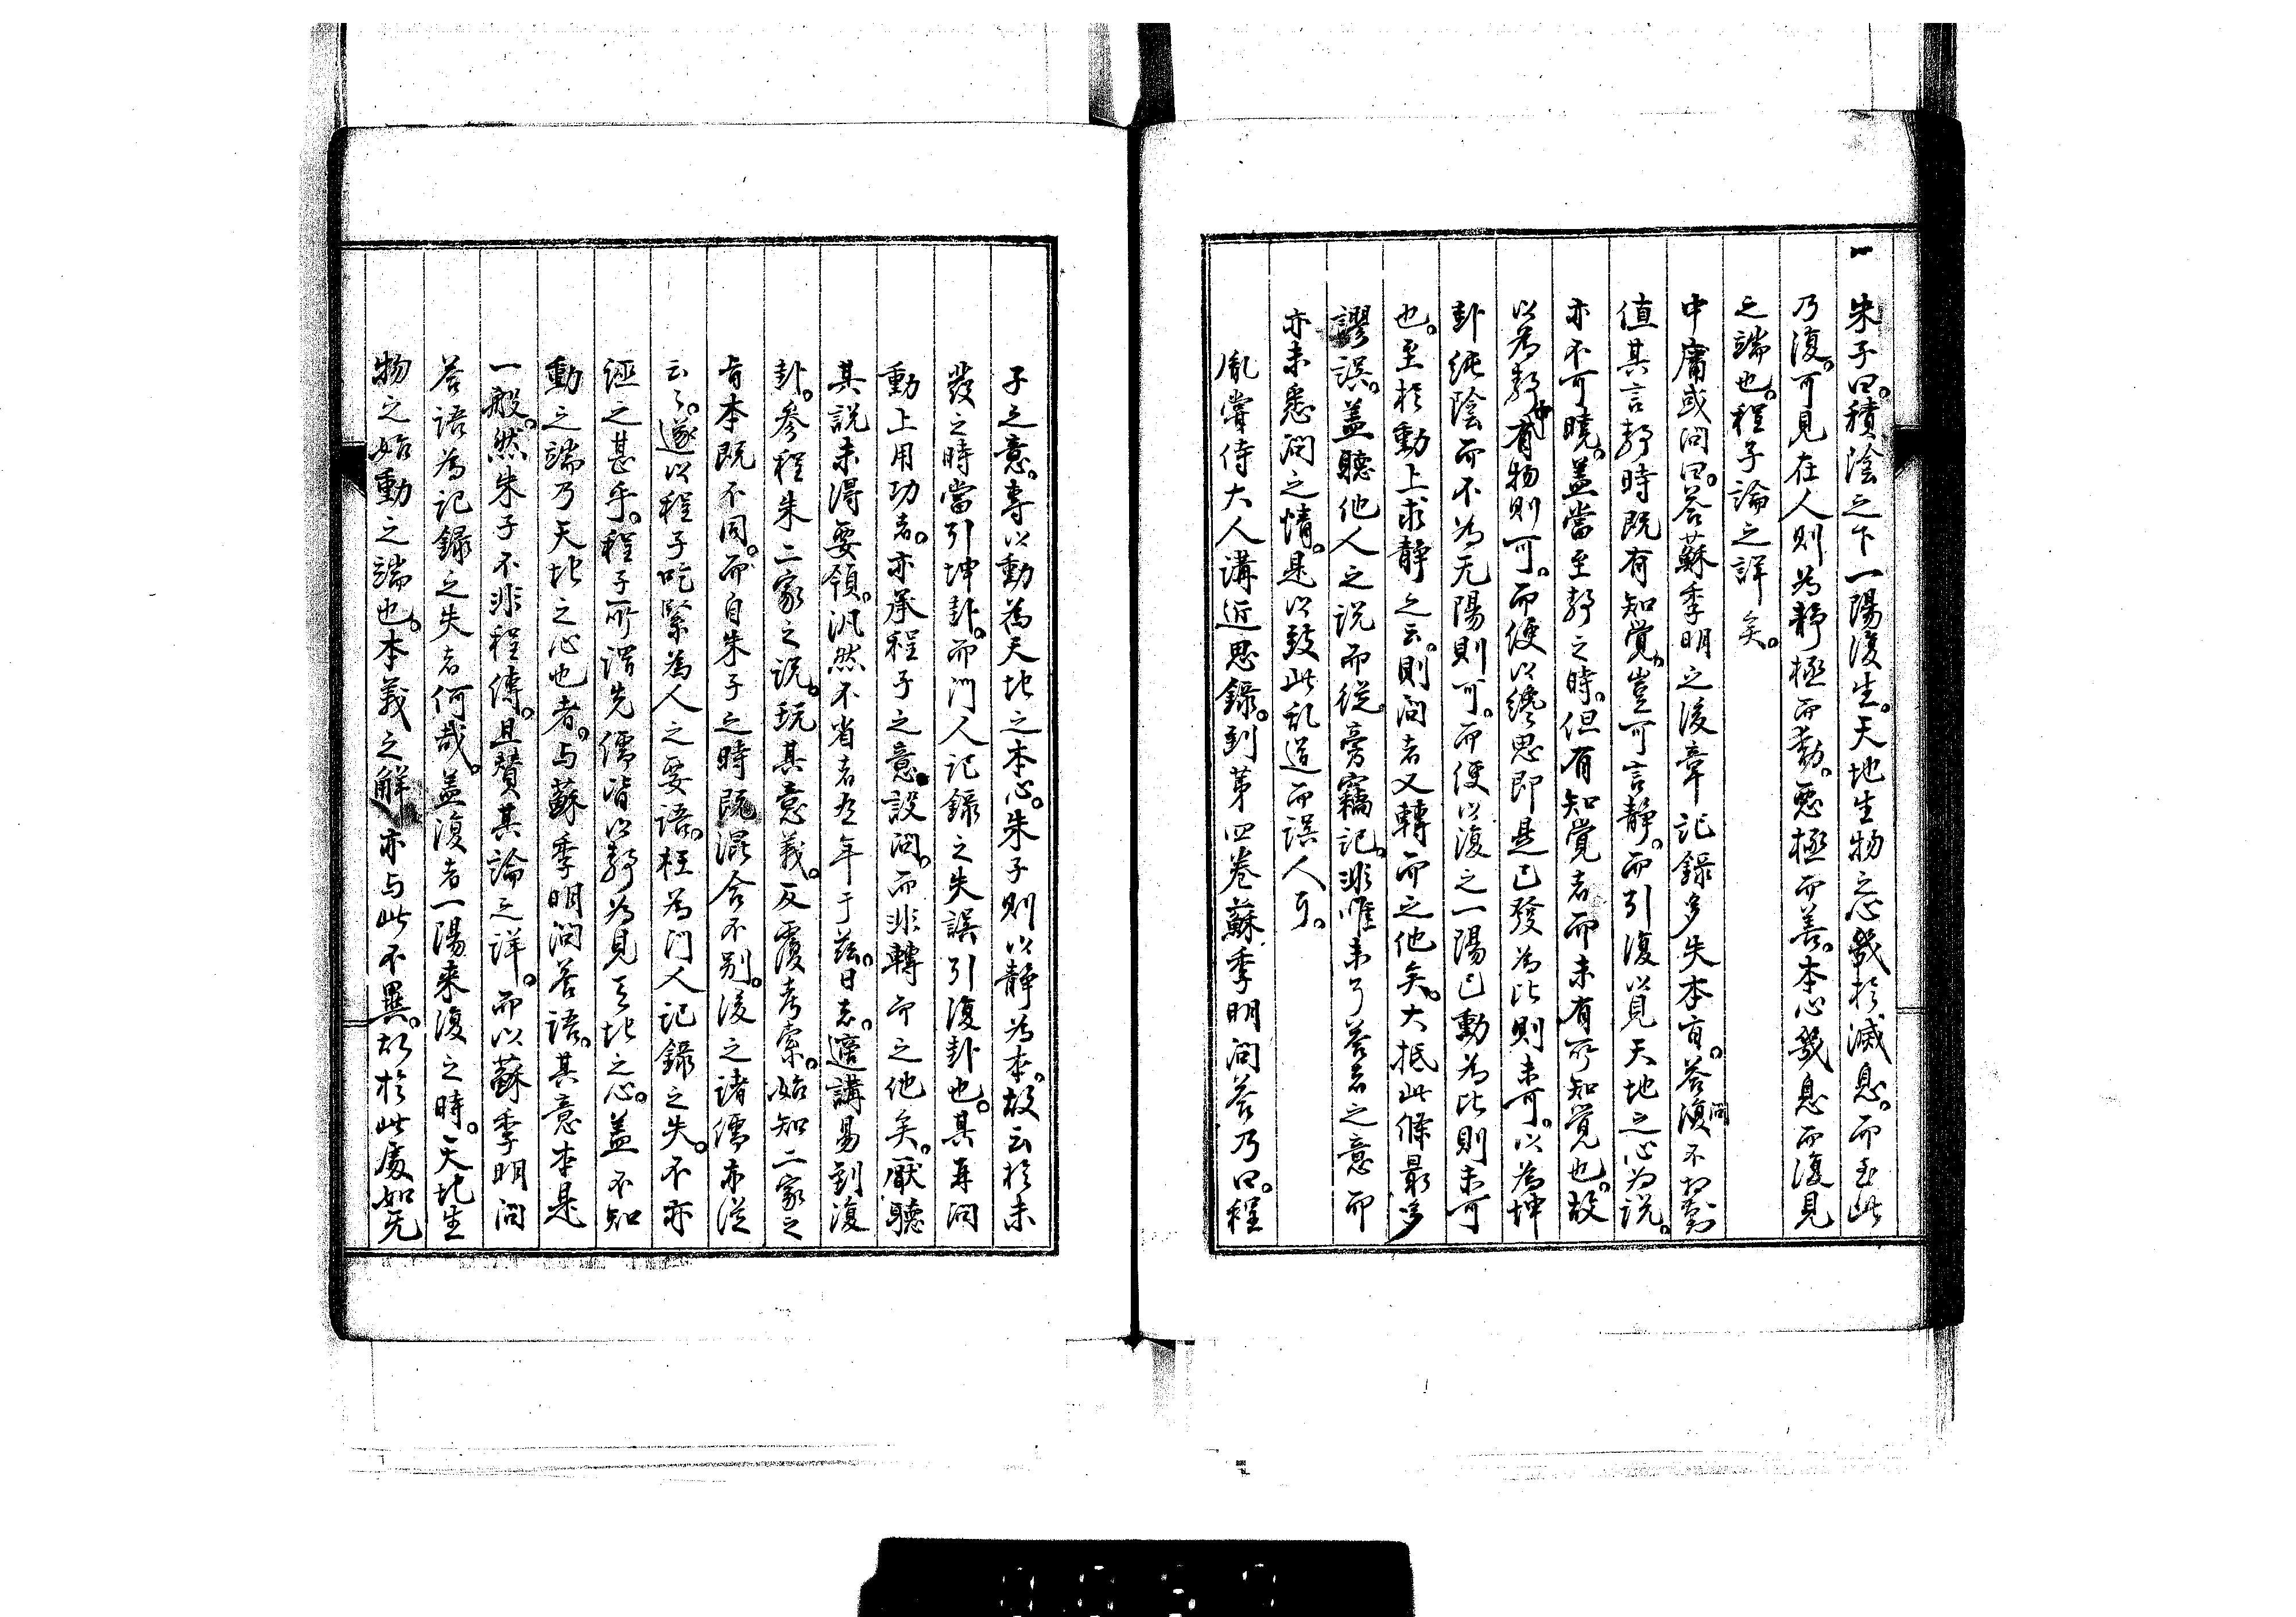 一 朱子曰。積陰之下一陽復生。天地生物之心幾於滅息。而至此
乃復。可見在人則為靜極而動。惡極而善。本心幾息而復見
之端也。程子論之詳矣。
中庸或問曰。答蘇季明之後章記錄多失本旨。答問不相對
值其言靜時既有知覚。豈可言靜。而引復以見天地之心為説。
亦不可曉。蓋當至靜之時。但有知覚者而未有所知覚也。故
以為靜中有物則可。而便以纔思即是已發為比則未可。以為坤
卦純陰而不為无陽則可。而便以復之一陽已動為比則未可
也。至於動上求靜之云。則問者又轉而之他矣。大抵此條最多
謬誤。蓋聽他人之説而從旁竊記。非惟未了答者之意而
亦未悉問之情。是以致此乱道而誤人耳。
胤嘗侍大人講近思錄。到第四卷蘇季明問答乃曰。程
子之意。專以動為天地之本心。朱子則以靜為本。故云於未
發之時當引坤卦。而門人記録之失誤引復卦也。其再問
動上用功者。亦承程子之意設問。而非轉而之他矣。厥聽
其説未得要領。汎然不省者有年于茲。日者。適講易到復
卦。參程朱二家之説。玩其意義。反覆考索。始知二家之
旨本既不同。而自朱子之時既混合不別。後之諸儒亦從
云々。遂以程子吃緊為人之要語。枉為門人記録之失。不亦
誣之甚乎。程子所謂先儒皆以靜為見天地之心。蓋不知
動之端乃天地之心也者。与蘇季明問答語。其意本是
一般。然朱子不非程傳。且賛其論之詳。而以蘇季明問
答語為記録之失者何哉。蓋復者一陽来復之時。天地生
物之始動之端也。本義之解亦与此不異。故於此處如无